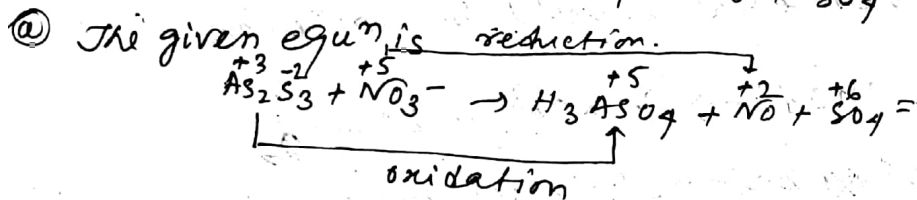 ⓐ The given equn is reduction.
+3 -2 +5 +5 +2 +6
As₂S₃ + NO₃⁻ → H₃AsO₄ + NO + SO₄⁼
oxidation